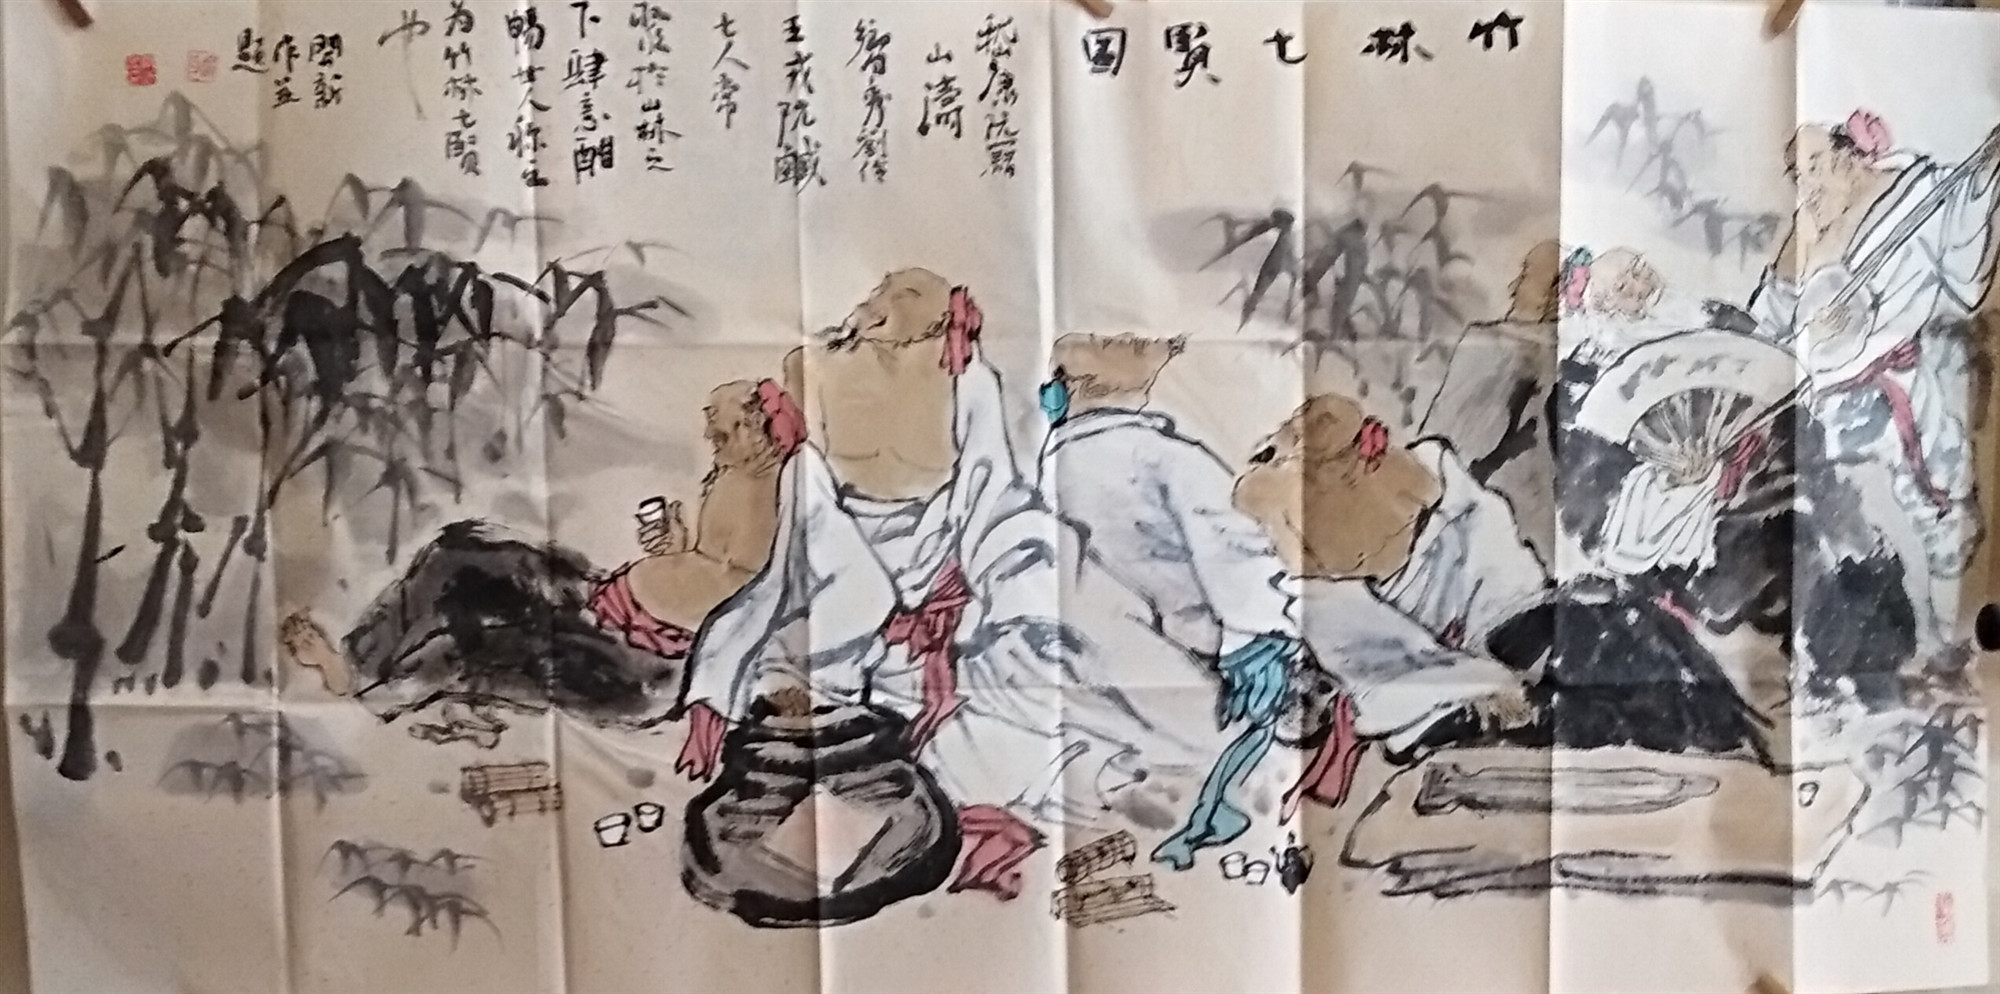 竹林七賢图
嵇康阮籍
山濤
嚮秀劉伶
王戎阮鹹
七人常
聚於山林之
下肆意酣
暢世人称之
为竹林七賢
也
新
作並
題